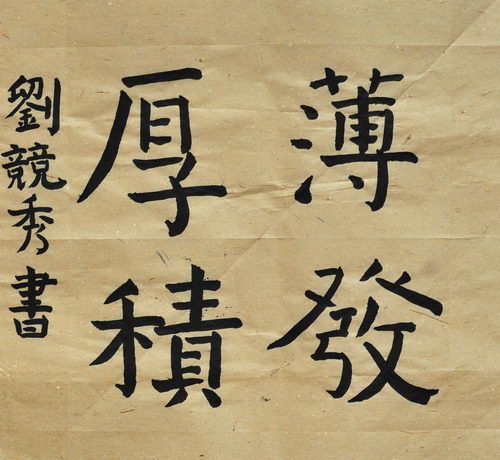 薄發
厚積
劉競秀書